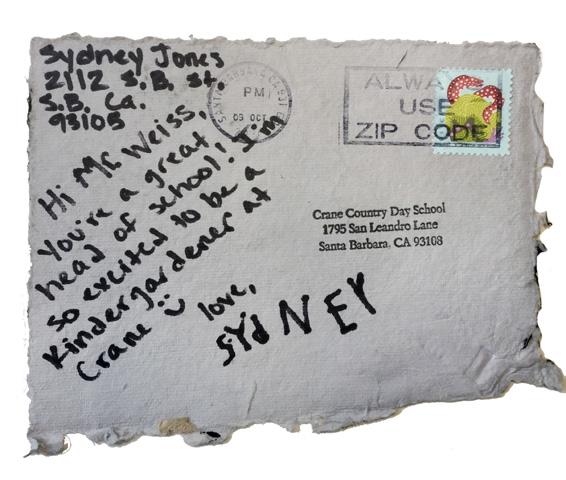 Sydney Jones
2112 S.B. St
S.B. Ca.
93105
PM
09 OCT
ALWA
USE
ZIP CODE
Hi Mr. Weiss,
You're a great
head of school! I'm
so excited to be a
Kindergardener at
Crane
love,
SYdNEY
Crane Country Day School
1795 San Leandro Lane
Santa Barbara, CA 93108